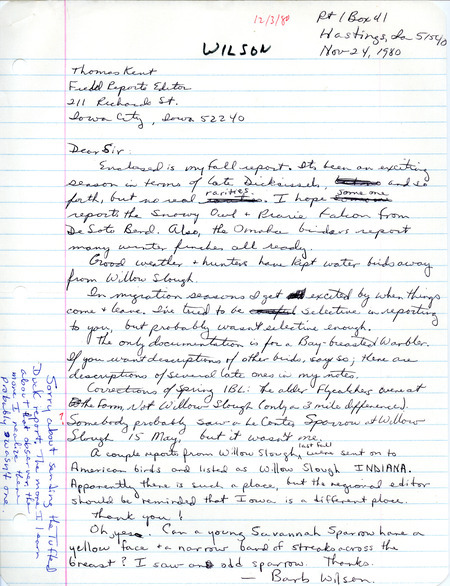 12/3/80
Rt 1 Box 41
Hastings, Ia 51540
Nov 24, 1980
WILSON
Thomas Kent
Field Reports Editor
211 Richards St.
Iowa City, Iowa 52240
Dear Sir:
Enclosed is my fall report. It's been an exciting
season in terms of late Dickcissels, and so
forth, but no real rarities. I hope some one
reports the Snowy Owl & Prairie Falcon from
De Soto Bend. Also, the Omaha birders report
many winter finches all ready.
Good weather & hunters have kept water birds away
from Willow Slough.
In migration seasons I get excited by when things
come & leave. I've tried to be selective in reporting
to you, but probably wasn't selective enough.
The only documentation is for a Bay-breasted Warbler.
If you want descriptions of other birds, say so; there are
descriptions of several late ones in my notes.
Corrections of Spring IBL: The alder Flycatchers were at
the Farm, Not Willow Slough (only a 3 mile difference).
? Somebody probably saw a Le Contes Sparrow at Willow
Slough 15 May, but it wasn't me.
A couple reports from Willow Slough last fall were sent on to
American birds and listed as Willow Slough INDIANA.
Apparently there is such a place, but the regional editor
should be reminded that Iowa is a different place.
Thank you!
Oh yes. Can a young Savannah Sparrow have a
yellow face & a narrow band of streaks across the
breast? I saw an odd sparrow. Thanks.
— Barb Wilson
Sorry about sending the Tufted
Duck report. The more I learn
about that observer, the
more I realize there
probably wasn't one.